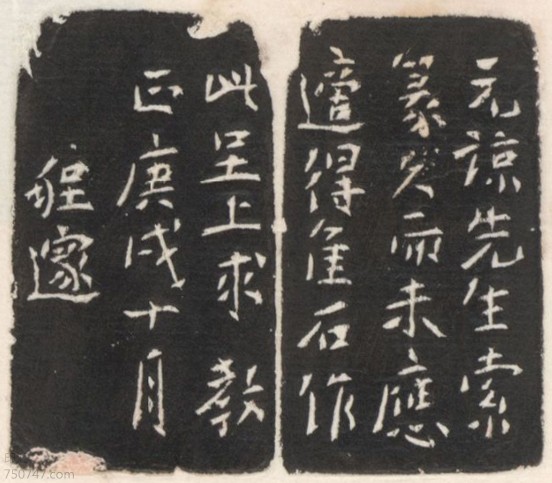 元諒先生索
篆久而未應
適得佳石作
此呈上求 教
正庚戌十月
程邃
750747.com